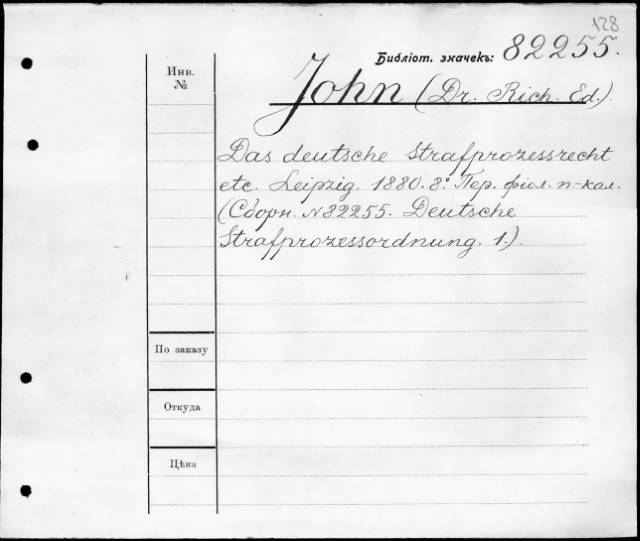 128
Библіот. значекъ: 82255.
Инв.
№
John (Dr. Rich. Ed.).
Das deutsche Strafprozessrecht
etc. Leipzig. 1880. 8° Пер. фіол. п-кал.
(Сборн. N 82255. Deutsche
Strafprozessordnung. 1.).
По заказу
Откуда
Цѣна